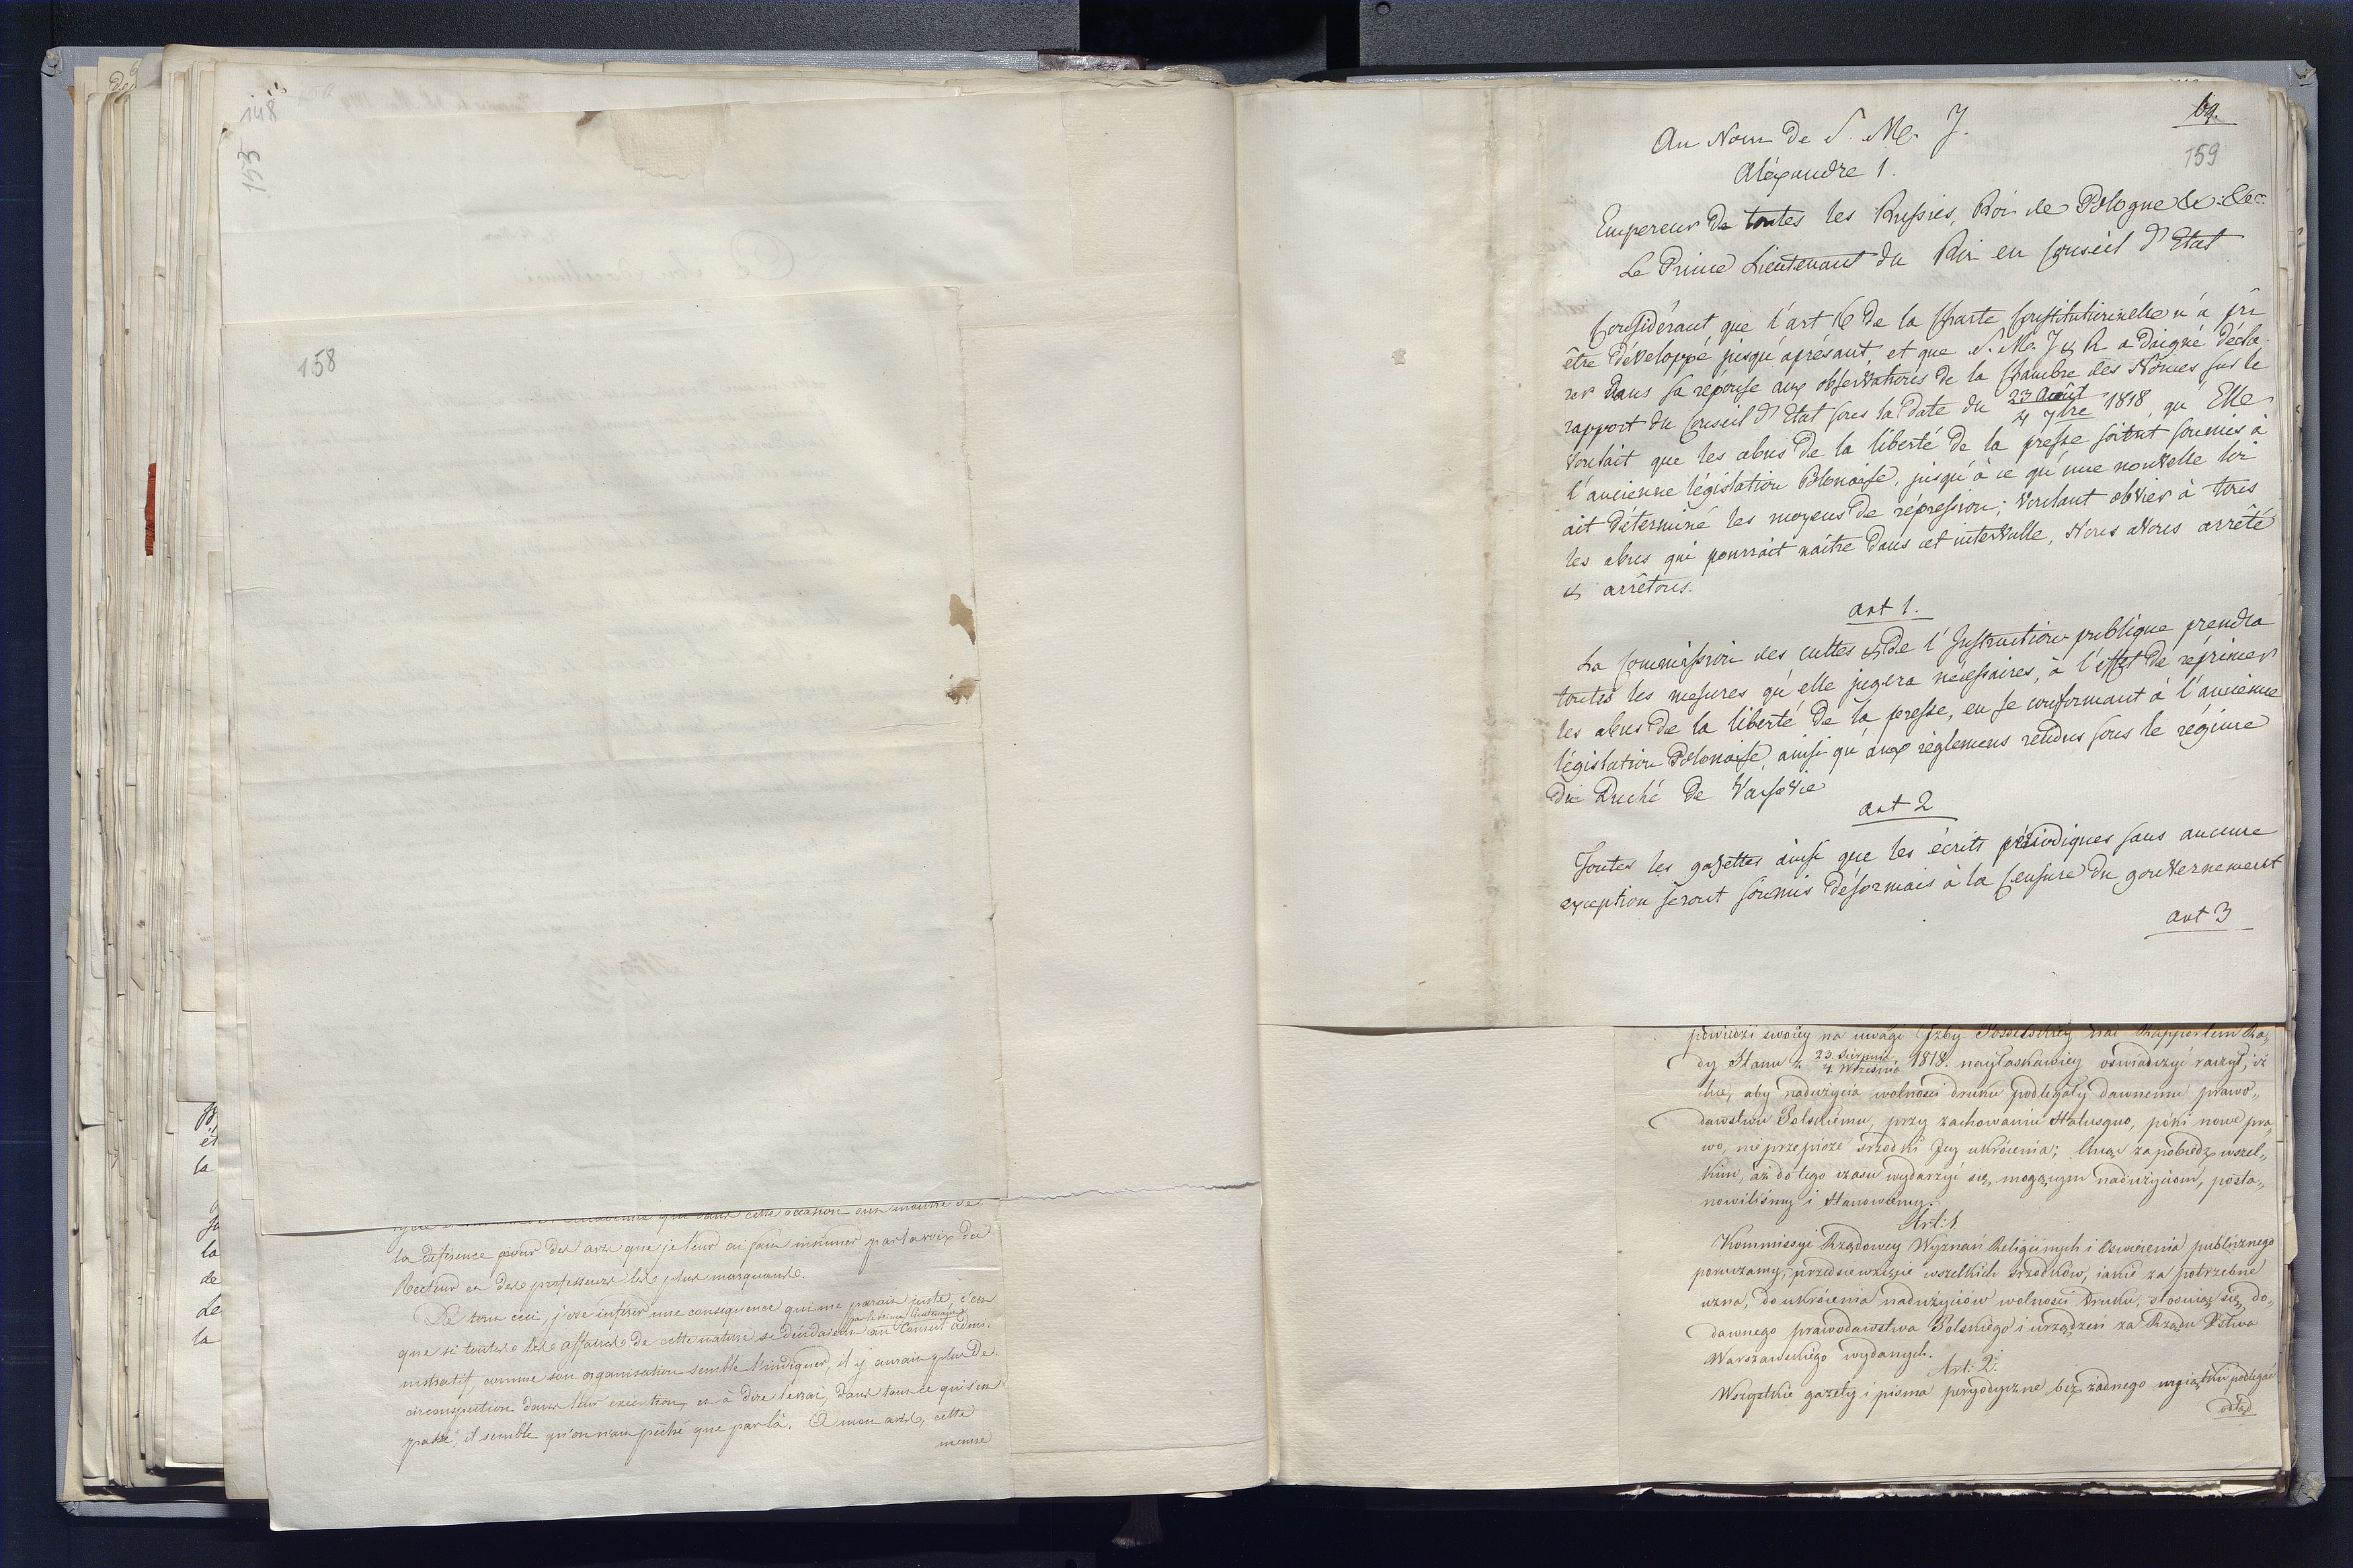 148
153
158
la déférence pour des avis que je leur ai fait insinuer par la voix du
Recteur et des professeurs les plus marquants.
De tout ceci, j'ose inférer une consequence qui me parait juste, c'est
par le Prince Lieutenant
que si toutes les affaires de cette nature se décidaient au Conseil admi-
nistratif, comme son organisation semble l'indiquer, il y aurait plus de
circonspection dans leur exécution, et à dire le vrai, dans tout ce qui s'est
passé, il semble qu'on n'ait péché que par là. A mon avis, cette
même
la
la
de
de
la
69.
159
Au Nom de S. M. J.
Aléxandre 1.
Empereur de toutes les Russies, Roi de Pologne &c: &c:
Le Prince Lieutenant du Roi en Conseil d'Etat
Considérant que l'art 16 de la Charte Constitutionnelle n'a pu
être développé jusqu'aprésant, et que S. M. J & R a daigné décla-
rer dans sa réponse aux observations de la Chambre des Nonces sur le
rapport du Conseil d'Etat sous la date du 23 Août / 4 7bre 1818, qu'Elle
voulait que les abus de la liberté de la presse soient soumis à
l'ancienne législation Polonaise, jusqu'à ce qu'une nouvelle loi
ait déterminé les moyens de répression; voulant obvier à tous
les abus qui pourrait naître dans cet intervalle, Nous avons arrêté
& arrêtons.
art 1.
La Commission des cultes & de l'Instruction publique prendra
toutes les mesures qu'elle jugera nécessaires, à l'effet de réprimer
les abus de la liberté de la presse, en se conformant à l'ancienne
législation Polonaise, ainsi qu'aux règlemens rendus sous le régime
du Duché de Varsovie
art 2
Toutes les gazettes ainsi que les écrits périodiques sans aucune
exception seront soumis désormais à la Censure du gouvernement
art 3
powiedzi swoiey na uwagi Izby Poselskiey nad Rapportem Ra„
dy Stanu z 23. Sierpnia / 4. Września 1818. nayłaskawiey oświadczyć raczył, iż
chce, aby nadużycia wolności druku podlegały dawnemu prawo„
dawstwu Polskiemu, przy zachowaniu Statusquo, póki nowe pra„
wo, nieprzepisze srzodki Jey ukrócenia; Chcąc zapobiedz wszel„
kim, aż do tego czasu wydarzyć się mogącym nadużyciom, posta„
nowiliśmy i Stanowiemy.
Art: 1.
Kommissyi Rządowey Wyznań Religijnych i Oświecenia publicznego
poruczamy, przedsięwzięcie wszelkich srzodków, iakie za potrzebne
uzna, do ukrócenia nadużyciów wolności druku, stosuiąc się do„
dawnego prawodawstwa Polskiego i urządzeń za Rządu Xstwa
Warszawskiego wydanych.
Art: 2.
Wszystkie gazety i pisma peryodyczne bez żadnego wyiątku podlegać
odtąd